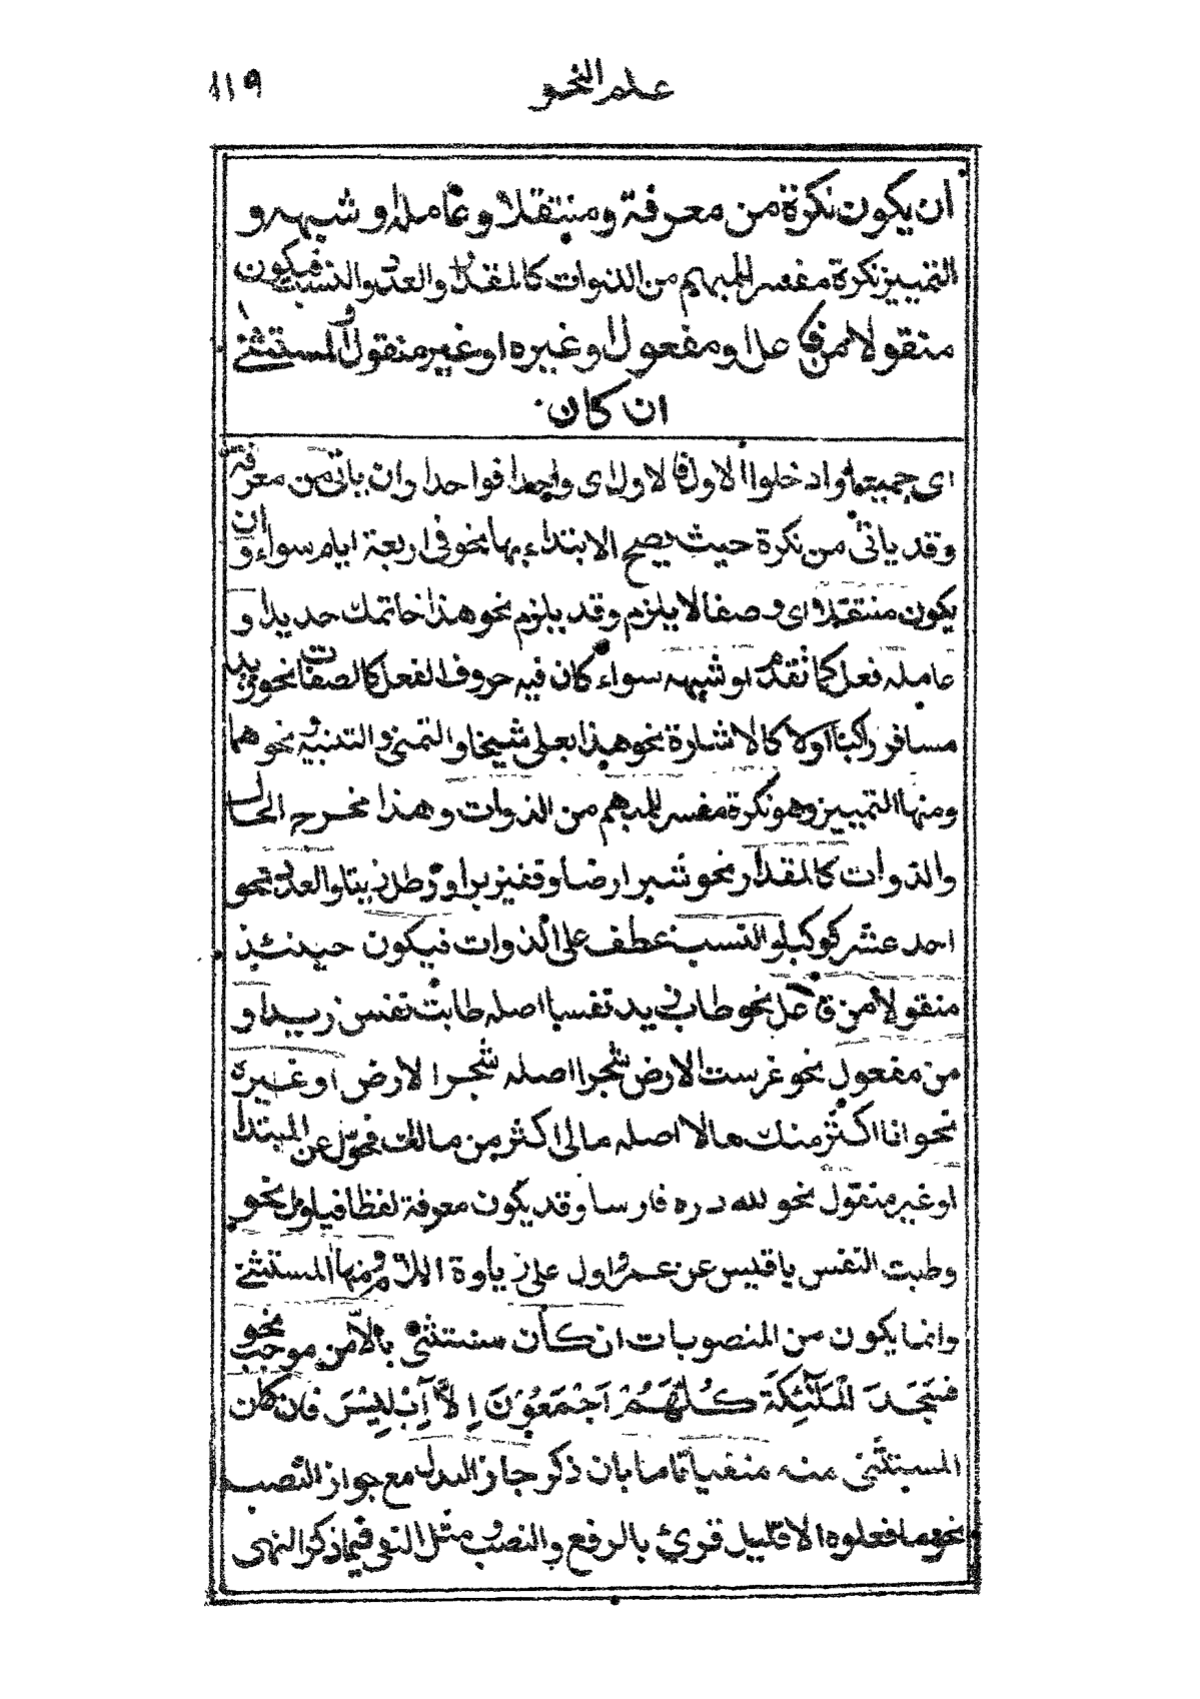 علم النحو
١١٩
ان يكون نكرة من معرفة ومنتقلا وعامله او شبهه و
التمييز نكرة مفسر للمبهم من الذوات كالمقدار والعدد والنسب فيكون
منقولا من فاعل او مفعول او غيره او غير منقول والمستثنى
ان كان
اى جميعا وادخلوا الاول فالاول اى واحدا فواحدا وان ياتى من معرفة
وقد ياتى من نكرة حيث يصح الابتداء بها نحو فى اربعة ايام سواء و ان
يكون منتقلا اى وصفا لا يلزم وقد يلزم نحو هذا خاتمك حديدا و
عامله فعل كما تقدم او شبهه سواء كان فيه حروف الفعل كالصفات نحو زيد
مسافر راكبا اولا كالاشارة نحو هذا بعلى شيخا والتمنى والتنبيه نحو هما
ومنها التمييز وهو نكرة مفسر للمبهم من الذوات وهذا مخرج الحال
والذوات كالمقدار نحو شبر ارضا وقفيز برا و رطل زيتا والعدد نحو
احد عشر كوكبا والنسب عطف على الذوات فيكون حينئذ
منقولا من فاعل نحو طاب زيد نفسا اصله طابت نفس زيد او
من مفعول نحو غرست الارض شجرا اصله شجر الارض او غيره
نحو انا اكثر منك مالا اصله مالى اكثر من مالك فحول عن المبتدا
او غير منقول نحو لله دره فارسا وقد يكون معرفة لفظا فياول نحو
وطبت النفس يا قيس عن عمرو اول على زيادة اللام ومنها المستثنى
وانما يكون من المنصوبات ان كان مستثنى بالا من موجب نحو
فَسَجَدَ الْمَلٰٓئِكَةُ كُلُّهُمْ اَجْمَعُوْنَ اِلَّآ اِبْلِيْسَ فان كان
المستثنى منه منفيا تاما بان ذكر جاز البدل مع جواز النصب
نحو ما فعلوه الا قليل قرئ بالرفع والنصب و مثل النفى فيما ذكر النهى